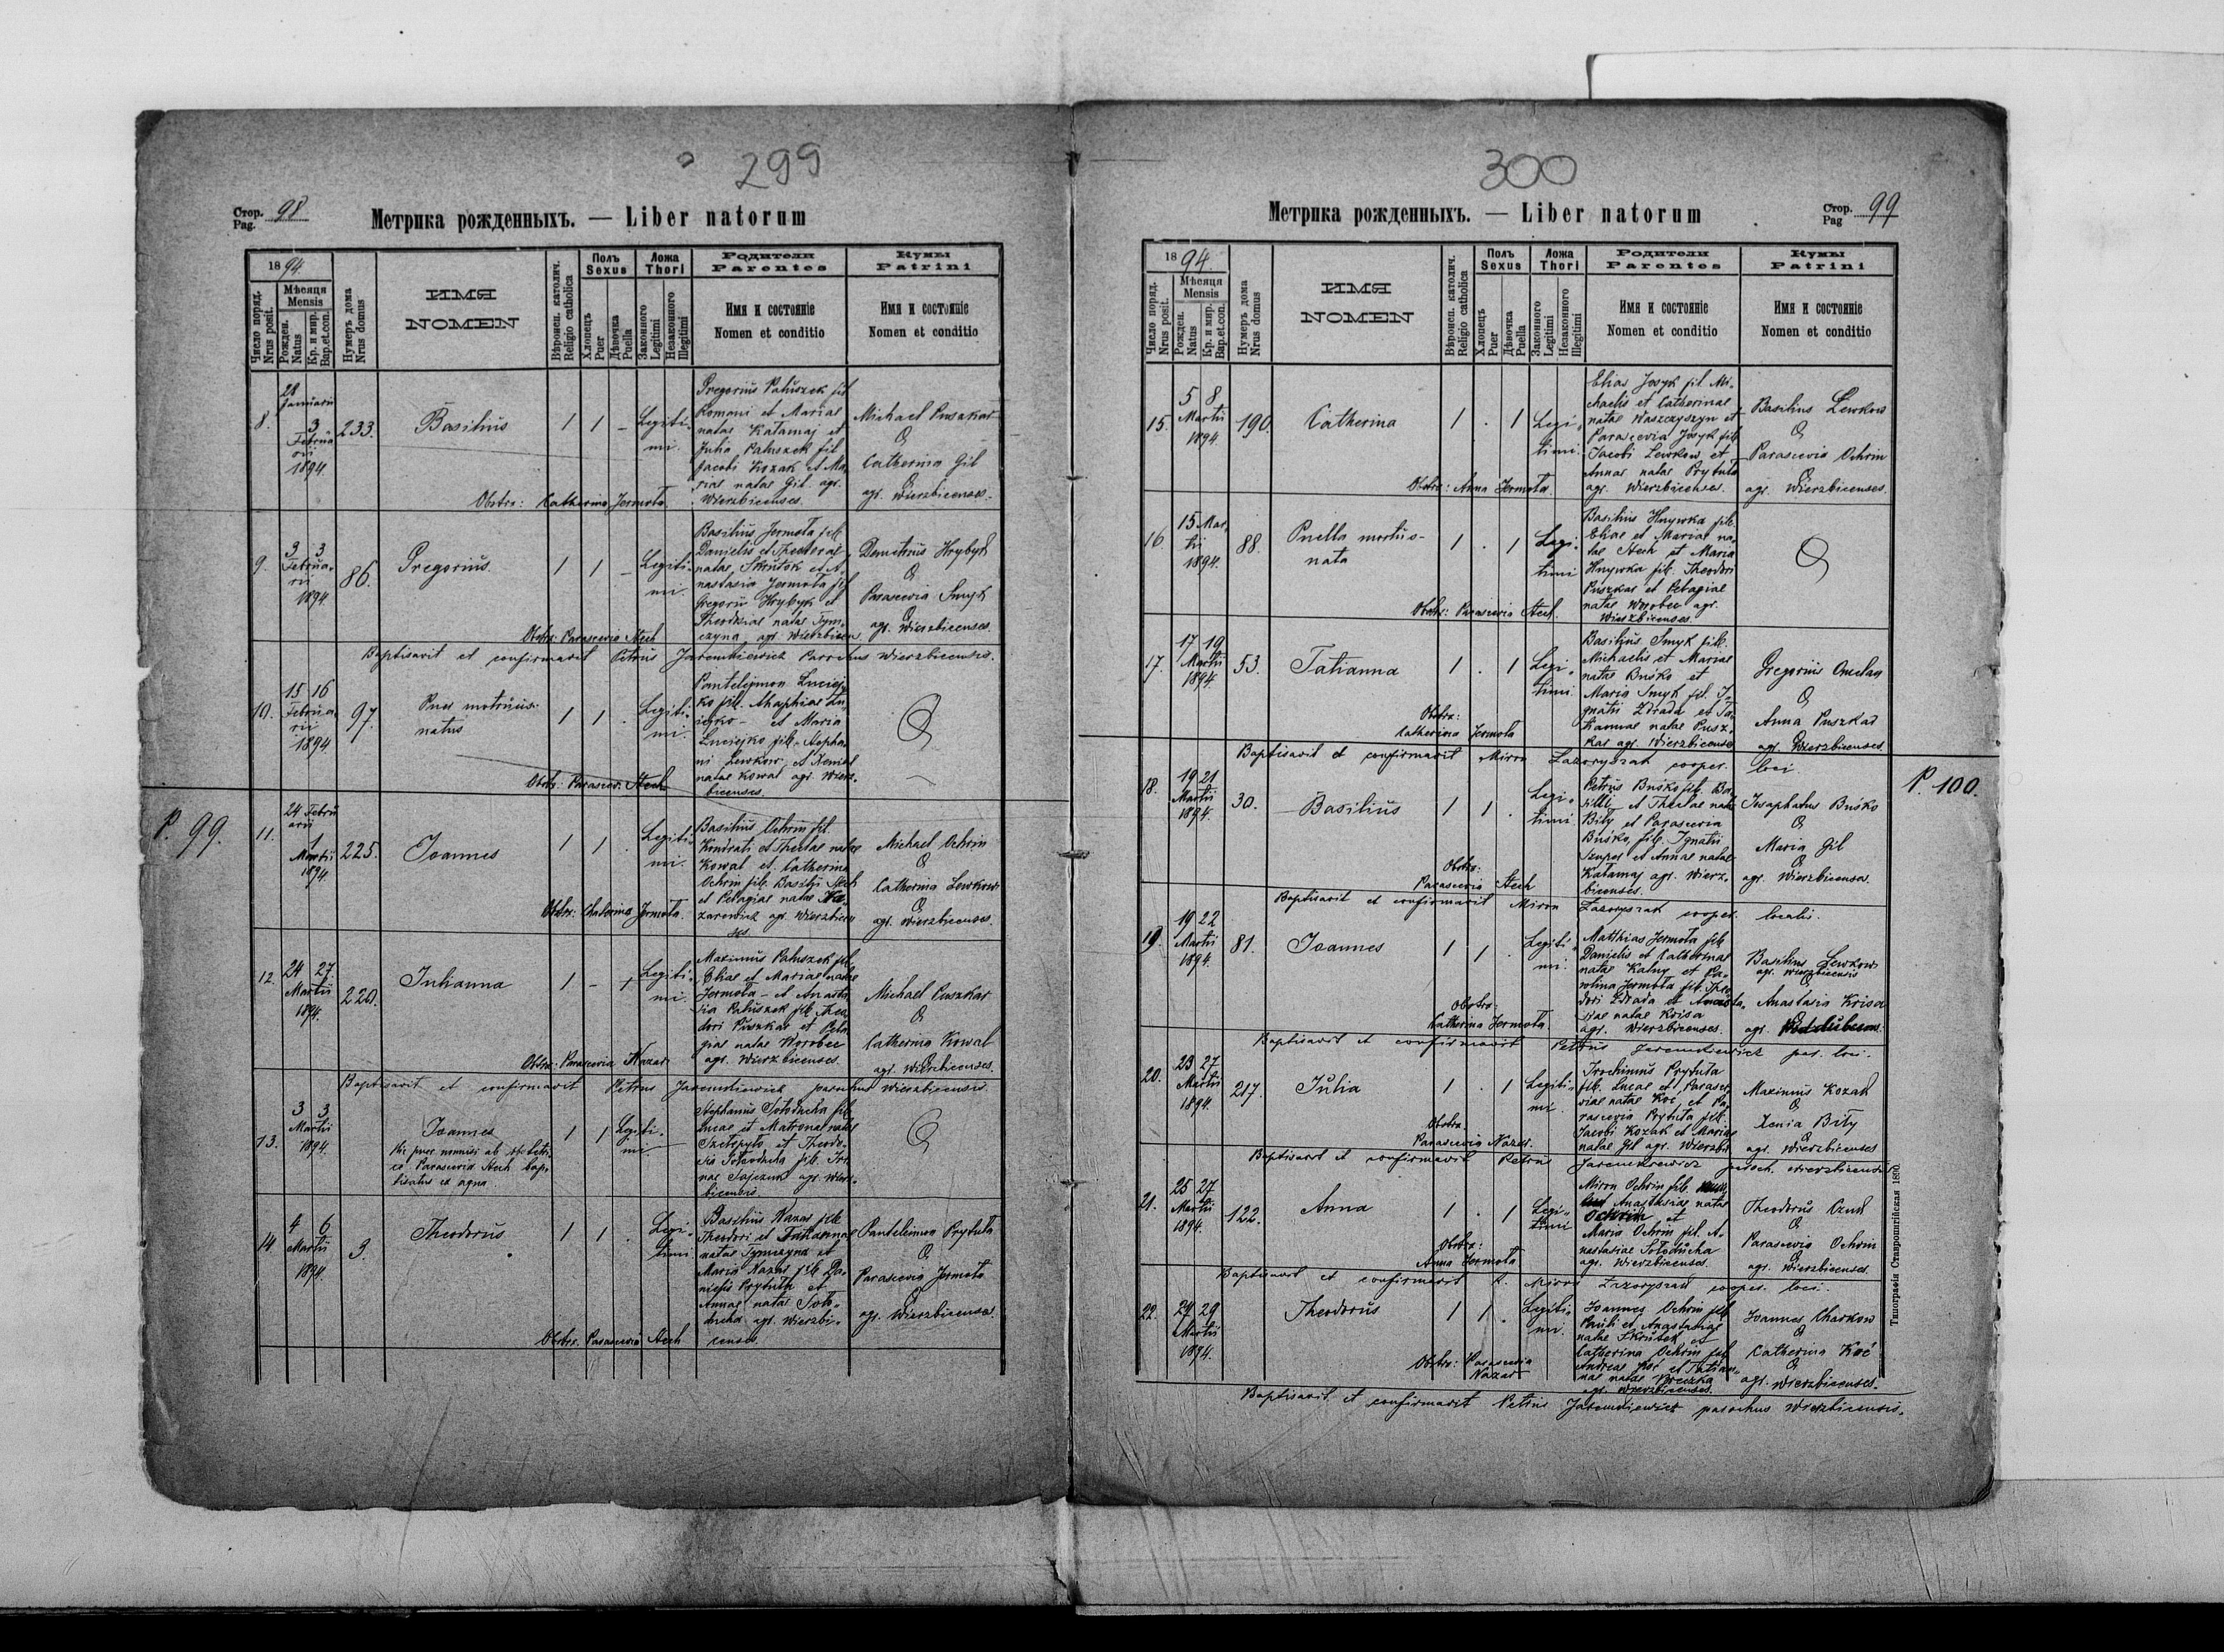 299
Стор. Pag. 98
Метрика рожденныхъ. — Liber natorum
1894
Число поряд. Nrus posit.
Мѣсяця Mensis
Рожден. Natus
Кр. и мир. Bap.et.con.
Нумеръ дома Nrus domus
ИМЯ
NOMEN
Вѣроисп. католич. Religio catholica
Полъ Sexus
Хлопецъ Puer
Дѣвочка Puella
Ложа Thori
Законного Legitimi
Незаконного Illegitimi
Родители
Parentes
Имя и состоянiе
Nomen et conditio
Кумы
Patrini
Имя и состоянiе
Nomen et conditio
8.
28 Januarii
3 Februarii
1894
233.
Basilius
1 1 –
Legitimi.
Gregorius Patuszek fil
Romani et Mariae
natae Katamaj et
Julia Patuszek fil
Jacobi Kozak et Ma-
riae natae Gil. agr.
Wierzbicenses.
Michael Puszkar
&
Catherina Gil
agr. Wierzbicenses.
Obstr: Catherina Jermota
9.
3 3
Februarii
1894.
86.
Gregorius
1 1 –
Legitimi.
Basilius Jermota fil.
Danielis et
natae Skrutok et A-
nastasia Jermota fil
Gregorii Hrybyk et
Theodosiae natae Tym-
czyna agr. Wierzbicen
Demetrius Hrybyk
&
Parascevia Smyk
agr. Wierzbicenses.
Obstr: Parascevia Stech
Baptisavit et confirmavit Petrus Jaremkiewicz Parochus Wierzbicensis.
10.
15 16
Februarii
1894
97.
Puer
natus
1 1 .
Legitimi.
Panteleimon Luciej-
ko fil.
et Maria
Luciejko fil. Stepha-
ni Lewkow et Xeniae
natae Kowal agr. Wierz-
bicenses.
Obstr: Parascev. Stech
P. 99.
11.
24 Februarii
1 Martii
1894.
225.
Joannes
1 1 .
Legitimi.
Basilius Ochrin fil.
Kondrati et Theclae natae
Kowal et Catherina
Ochrin fil. Basilii Stech
et Pelagiae natae Na-
zarewicz agr. Wierzbicen
ses.
Michael Ochrin
&
Catherina Lewkow
agr. Wierzbicenses.
Obstr: Catherina Jermota.
12.
24 27.
Martii
1894.
220.
Julianna
1 – 1
Legitimi.
Maximus Patuszek fil.
Eliae et Mariae natae
Jermota – et Anasta
sia Patuszek fil. Theo
dori Puszkar et Pela
giae natae Worobec
agr. Wierzbicenses.
Michael Puszkar
&
Catherina Kowal
agr. Wierzbicenses.
Obstr: Parascevia Nazar
Baptisavit et confirmavit Petrus Jaremkiewicz parochus Wierzbicensis.
13.
3 3
Martii
1894.
Joannes
Hic puer nonnisi ab obstetri-
ce Parascevia Stech bap-
tisatus ex aqua.
1 1
Legitimi.
Stephanus Sołoducha fil.
Lucae et Matronae natae
et Theodo-
sia Sołoducha fil.
agr. Wierz-
bicensis.
14.
4 6
Martii
1894.
3.
Theodorus
1 1 .
Legitimi.
Basilius Nazar fil.
Theodori et Tatiannae
natae Tymczyna et
Maria Nazar fil. Da-
nielis Prytuta et
Annae natae Soło-
ducha agr. Wierzbi-
censes.
Panteleimon Prytuta
&
Parascevia Jermota
agr. Wierzbicenses.
Obstr. Parascevia Stech
300
Метрика рожденныхъ. — Liber natorum
Стор. Pag 99
1894.
Число поряд. Nrus posit.
Мѣсяця Mensis
Рожден. Natus
Кр. и мир. Bap.et.con.
Нумеръ дома Nrus domus
ИМЯ
NOMEN
Вѣроисп. католич. Religio catholica
Полъ Sexus
Хлопецъ Puer
Дѣвочка Puella
Ложа Thori
Законного Legitimi
Незаконного Illegitimi
Родители
Parentes
Имя и состоянiе
Nomen et conditio
Кумы
Patrini
Имя и состоянiе
Nomen et conditio
15.
5 8
Martii
1894.
190.
Catherina
1 . 1
Legitimi.
Elias Josyk fil. Mi-
chaelis et Catherinae
natae Waszczyszyn et
Parascevia Josyk fil.
Jacobi Lewkow et
Annae natae Prytuta
agr. Wierzbicenses.
Basilius Lewkow
&
Parascevia Ochrin
agr. Wierzbicenses.
Obstr: Anna Jermota.
16.
15 Martii
1894.
88.
Puella mortuo-
nata
1 . 1
Legitimi
Basilius Hnywka fil.
Eliae et Mariae na-
tae Stech et Maria
Hnywka fil. Theodori
Puszkar et Pelagiae
natae Worobec agr.
Wierzbicenses.
Obstr: Parascevia Stech.
17.
17 19
Martii
1894.
53.
Tatianna
1 . 1
Legitimi.
Basilius Smyk fil.
Michaelis et Mariae
natae Buśko et
Maria Smyk fil. I-
gnatii Zdrada et Ta-
tiannae natae Pusz-
kar agr. Wierzbicenses
Gregorius
&
Anna Puszkar
agr. Wierzbicenses.
Obstr:
Catherina Jermota
Baptisavit et confirmavit Miron Zazoryszak cooper. loci.
P. 100.
18.
19 21
Martii
1894.
30.
Basilius
1 1 .
Legitimi.
Petrus Buśko fil. Ba-
silii et Theclae natae
Biły et Parascevia
Buśko fil. Ignatii
et Annae natae
Katamaj agr. Wierz-
bicenses.
Josaphatus Buśko
&
Maria Gil
agr. Wierzbicenses.
Obstr:
Parascevia Stech
Baptisavit et confirmavit Miron Zazoryszak cooper. localis.
19.
19 22
Martii
1894.
81.
Joannes
1 1 .
Legitimi.
Matthias Jermota fil.
Danielis et Catherinae
natae Kalny et Ca-
rolina Jermota fil. Theo
dori Zdrada et Anasta-
siae natae Krisa
agr. Wierzbicenses.
Basilius Lewkow
agr. Wierzbicensis
&
Anastasia Krisa
agr.
Obstr:
Catherina Jermota
Baptisavit et confirmavit Petrus Jaremkiewicz par. loci.
20.
23 27.
Martii
1894.
217.
Julia
1 . 1
Legitimi.
Trochimus Prytuta
fil. Lucae et Parasce
viae natae Koć et Pa-
rascevia Prytuta fil.
Jacobi Kozak et Mariae
natae Gil agr. Wierzbi
Maximus Kozak
&
Xenia Biły
agr. Wierzbicenses
Obstr.
Parascevia Nazar.
Baptisavit et confirmavit Petrus Jaremkiewicz paroch. Wierzbicensis
21.
25 27
Martii
1894.
122.
Anna
1 . 1
Legitimi
Miron Ochrin fil.
Anastasiae natae
Ochrin et
Maria Ochrin fil. A-
nastasiae Sołoducha
agr. Wierzbicenses.
Theodorus
&
Parascevia Ochrin
agr. Wierzbicenses.
Obstr:
Anna Jermota
Baptisavit et confirmavit R. Miron Zazoryszak cooper. loci.
22.
24 29
Martii
1894.
Theodorus
1 1 .
Legitimi.
Joannes Ochrin fil.
Pauli et Anastasiae
natae Skrutok et
Catherina Ochrin fil.
Andreae Koć et Tatian-
nae natae
agr. Wierzbicenses.
Joannes Charkow
&
Catherina Koć
agr. Wierzbicenses.
Obstr: Parascevia
Nazar
Baptisavit et confirmavit Petrus Jaremkiewicz parochus Wierzbicensis.
Типографія Ставропигійская 1890.